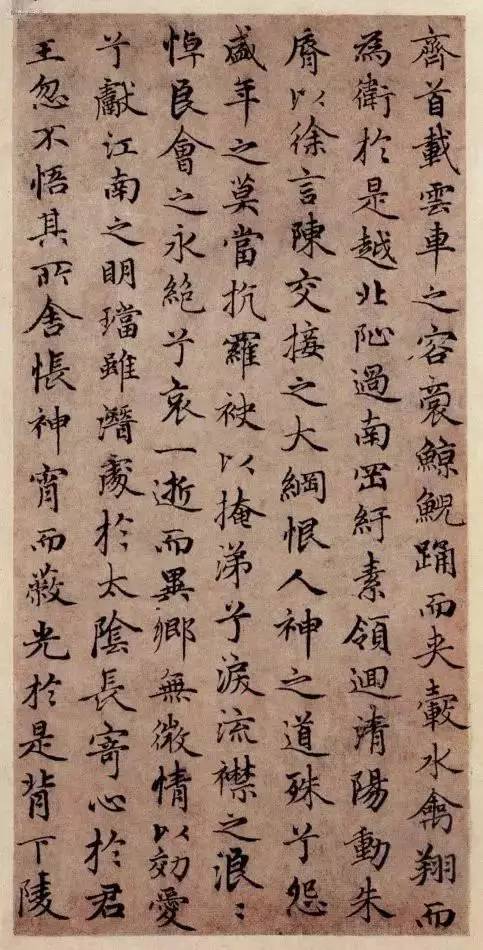 齊首載雲車之容裔鯨鯢踊而夾轂水禽翔而
為衛於是越北阯過南岡紆素領迴清陽動朱
脣以徐言陳交接之大綱恨人神之道殊兮怨
盛年之莫當抗羅袂以掩涕兮淚流襟之浪〻
悼良會之永絶兮哀一逝而異鄉無微情以効愛
兮獻江南之眀璫雖潛處於太陰長寄心於君
王忽不悟其所舍悵神宵而蔽光於是背下陵